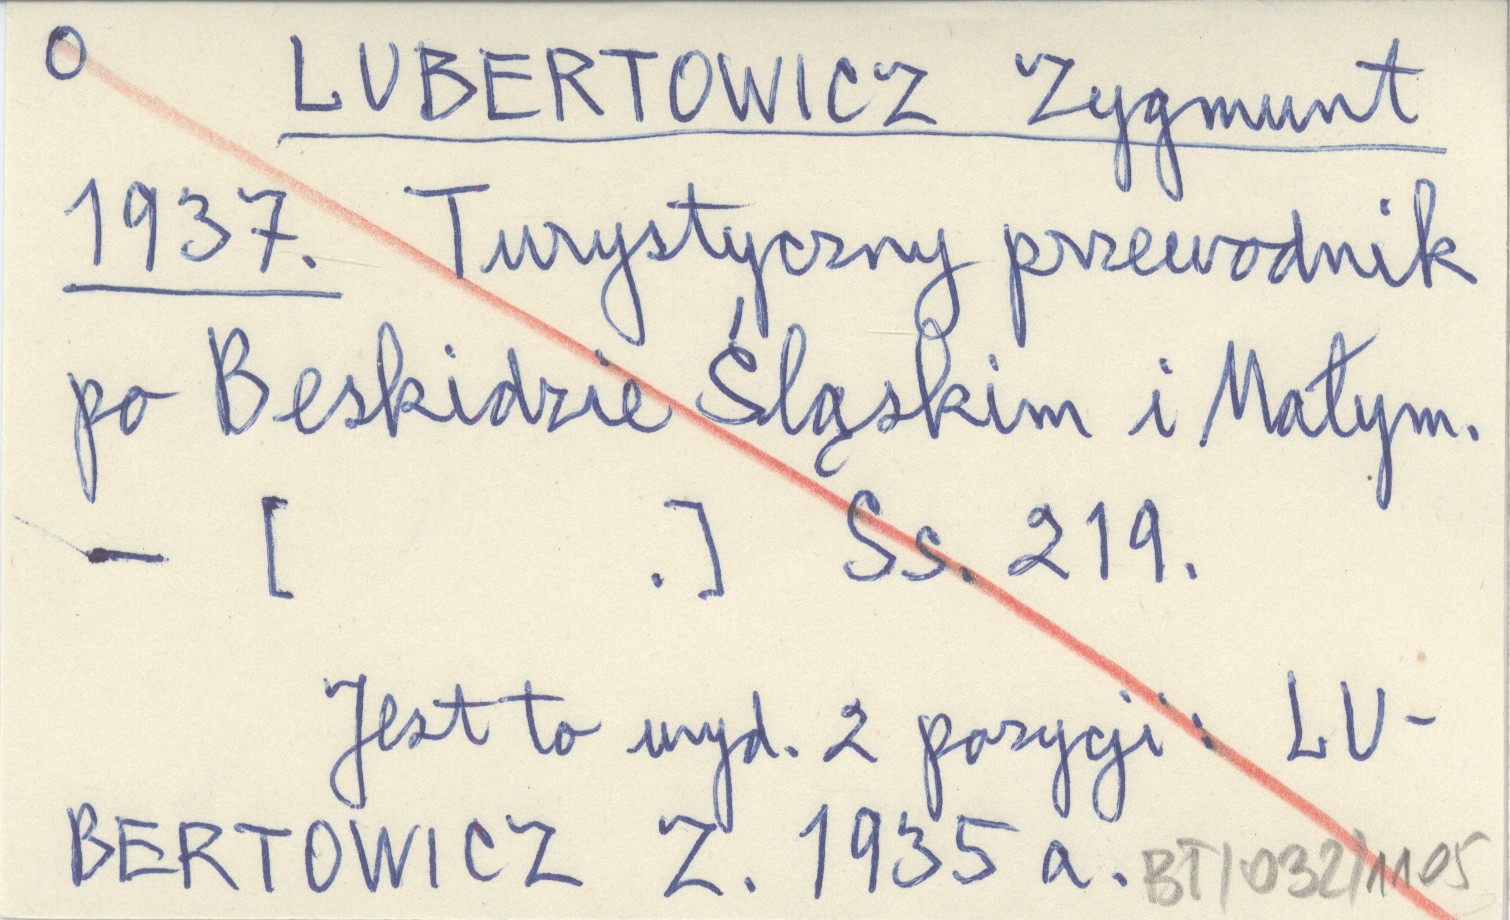 O LUBERTOWICZ Zygmunt
1937. Turystyczny przewodnik
po Beskidzie Śląskim i Małym.
— [ .] Ss. 219.
Jest to wyd. 2 pozycji: LU-
BERTOWICZ Z. 1935 a.
BT/032/1105